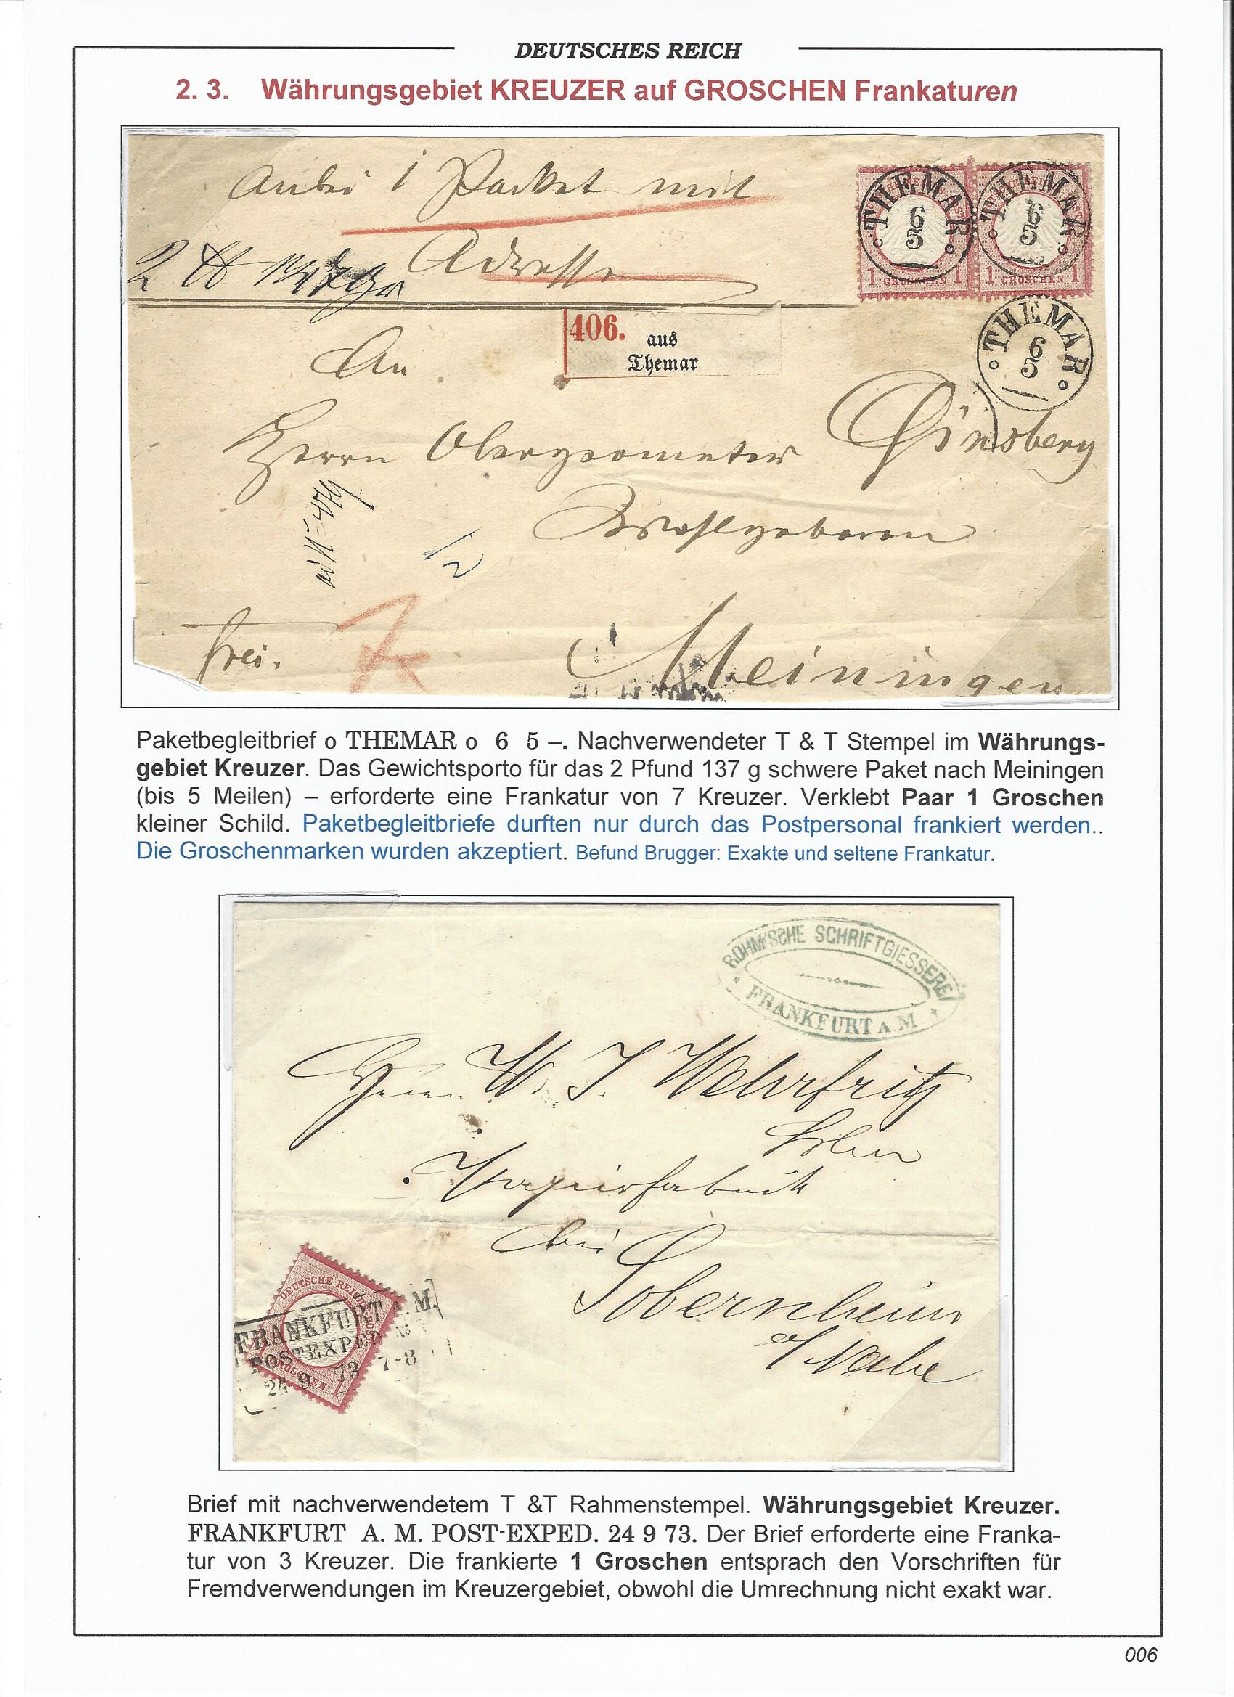 DEUTSCHES REICH
2. 3. Währungsgebiet KREUZER auf GROSCHEN Frankaturen
Anbei 1 Packet mit
Adresse
THEMAR
6
5
THEMAR
6
5
1 GROSCHEN 1
1 GROSCHEN 1
THEMAR
6
5
406. aus
Themar
An
Herrn Obergeometer
Wohlgeboren
frei.
7
Meiningen
Paketbegleitbrief o THEMAR o 6 5 –. Nachverwendeter T & T Stempel im Währungs-
gebiet Kreuzer. Das Gewichtsporto für das 2 Pfund 137 g schwere Paket nach Meiningen
(bis 5 Meilen) – erforderte eine Frankatur von 7 Kreuzer. Verklebt Paar 1 Groschen
kleiner Schild. Paketbegleitbriefe durften nur durch das Postpersonal frankiert werden..
Die Groschenmarken wurden akzeptiert. Befund Brugger: Exakte und seltene Frankatur.
ROHM'SCHE SCHRIFTGIESSEREI
FRANKFURT A M
Herrn W. J. Wehrfritz
Sohn
Papierfabrik
bei
Sobernheim
a/Nahe
DEUTSCHE REICHS
FRANKFURT A. M.
POST EXPED
24 9 73 7-8
Brief mit nachverwendetem T &T Rahmenstempel. Währungsgebiet Kreuzer.
FRANKFURT A. M. POST-EXPED. 24 9 73. Der Brief erforderte eine Franka-
tur von 3 Kreuzer. Die frankierte 1 Groschen entsprach den Vorschriften für
Fremdverwendungen im Kreuzergebiet, obwohl die Umrechnung nicht exakt war.
006